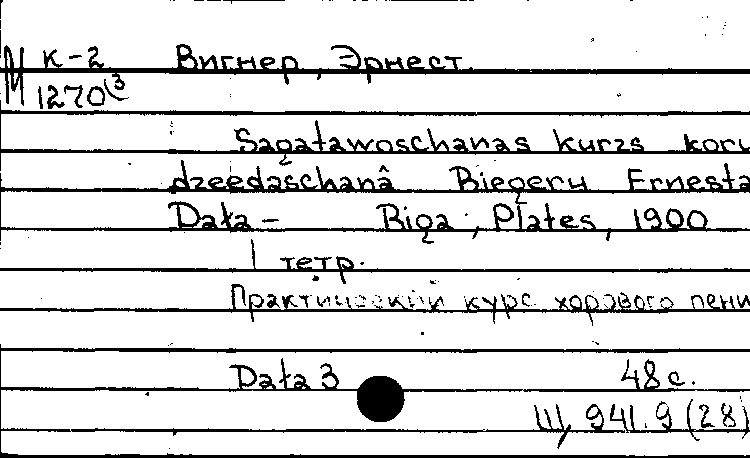 М К-2 Вигнер, Эрнест.
1270(3
Sagatawoschanas kurzs koru
dzeedaschanâ Biegeru Ernesta
Data - Riga, Plates, 1900
1 тетр.
Практический курс хорового пени
Data 3 48 с.
Ш, 941.9 (28)